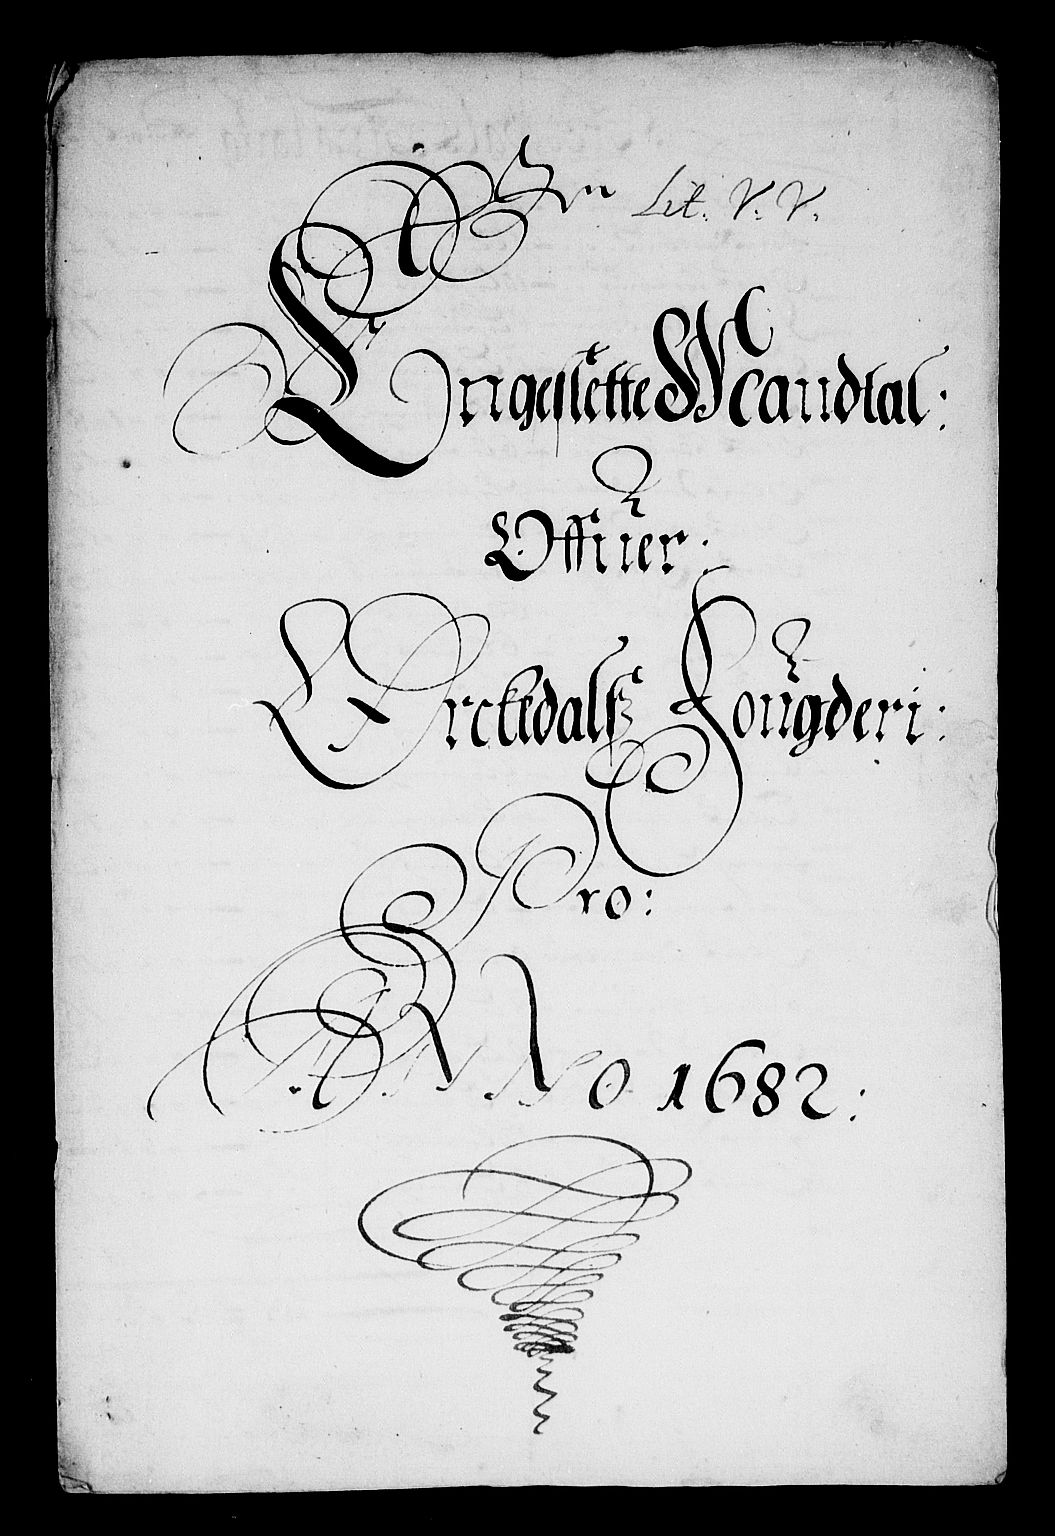 Lit. V. V.
Ungeslette Mandtal:
Offuer:
Orckedals Fougderi:
Pro:
ANNO 1682: